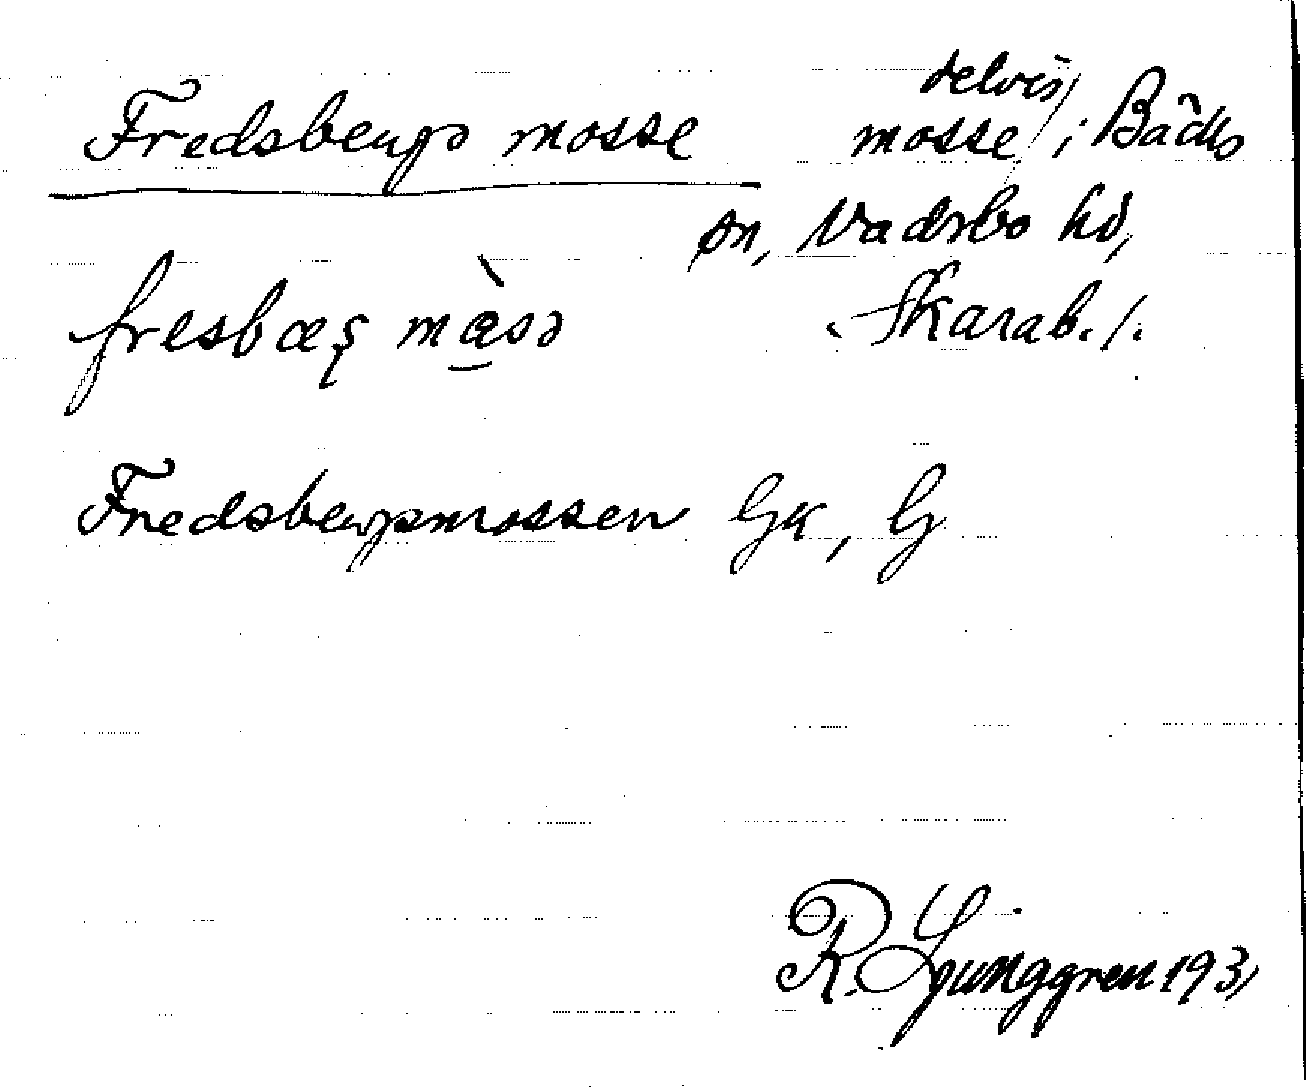 Fredsbergs mosse
delvis
mosse, i Bäcks
sn, Vadsbo hd,
Skarab. l.
fresbæş mäsə
Fredsbergsmossen Gk, G
R. Ljunggren 193